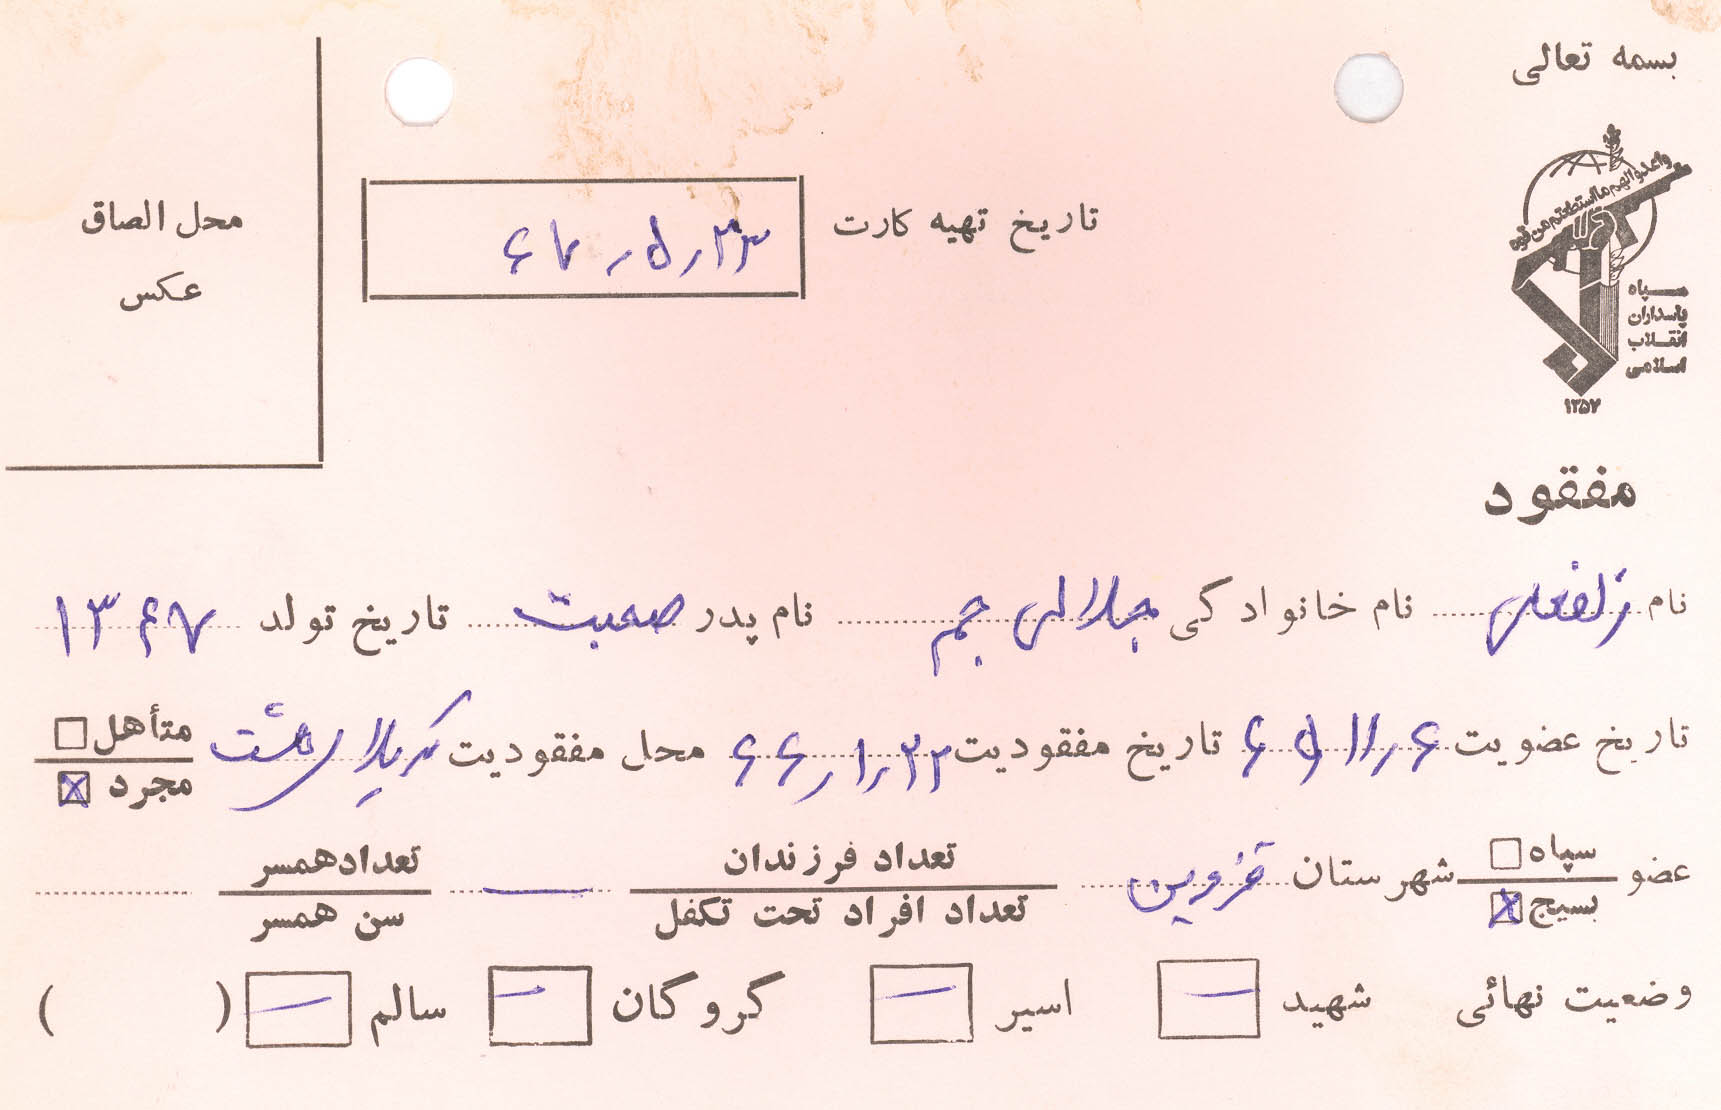 بسمه تعالی
واعدوا لهم ما استطعتم من قوه
سپاه
پاسداران
انقلاب
اسلامی
۱۳۵۷
تاریخ تهیه کارت ۲۳ر۵ر۶۷
محل الصاق
عکس
مفقود
نام زلفعلی نام خانوادگی جلالی جم نام پدر صحبت تاریخ تولد ۱۳۴۷
تاریخ عضویت ۶ر۱۱ر۶۵ تاریخ مفقودیت ۲۲ر۱ر۶۶ محل مفقودیت کربلای هشت متأهل مجرد
عضو سپاه بسیج شهرستان قزوین تعداد فرزندان تعداد افراد تحت تکفل تعداد همسر سن همسر
وضعیت نهائی شهید اسیر گروگان سالم ( )